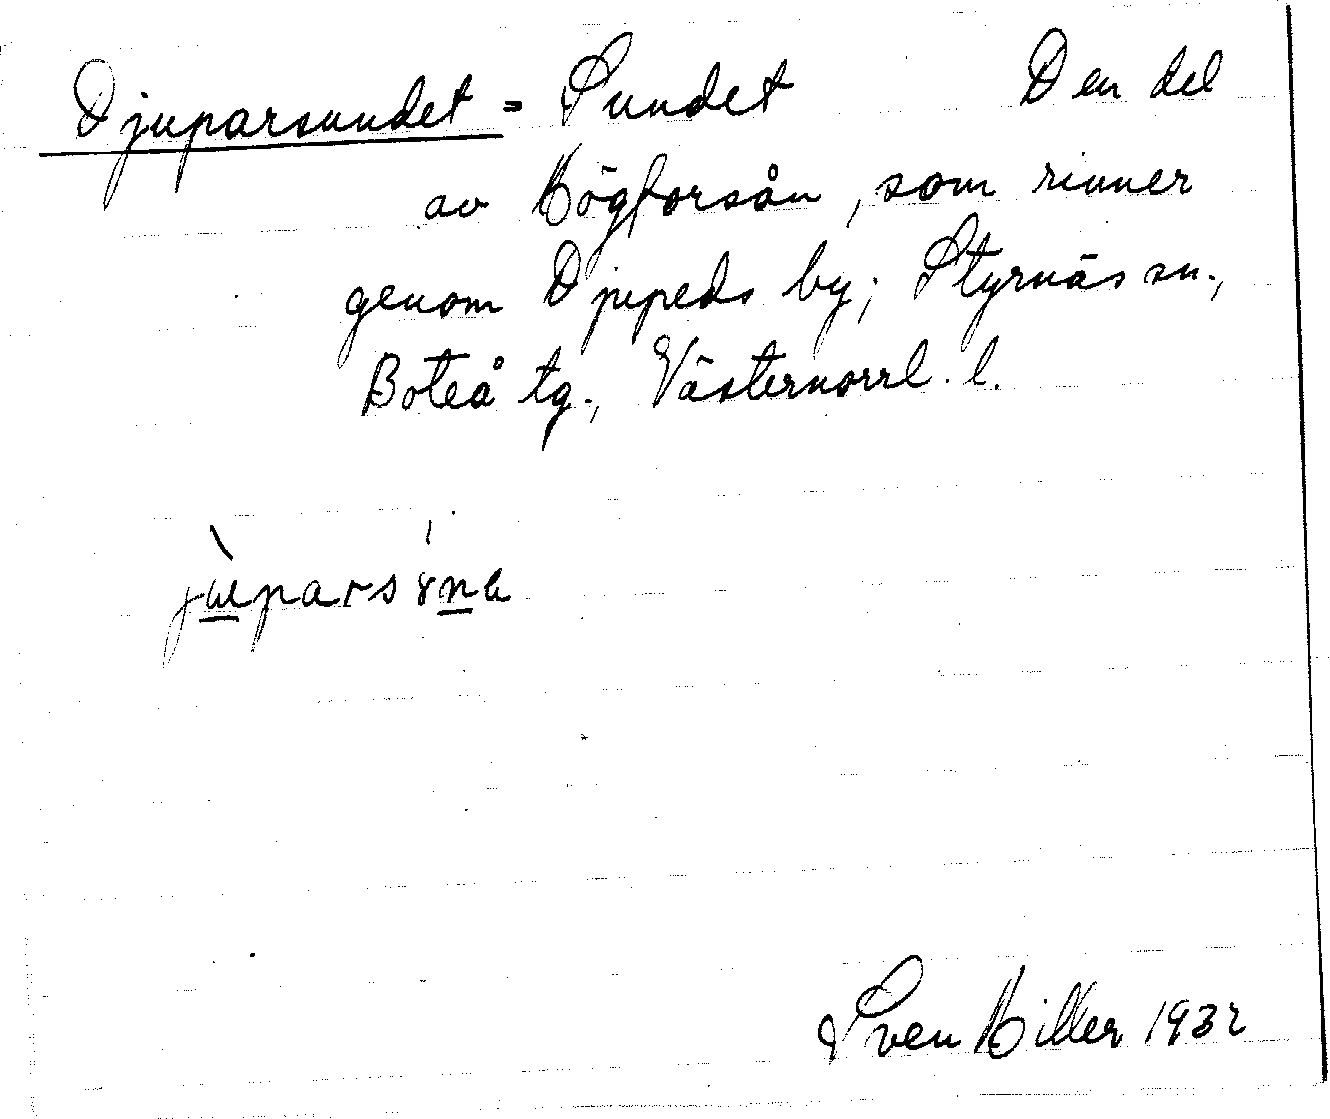 Djuparsundet = Sundet Den del
av Högforsån, som rinner
genom Djupeds by; Styrnäs sn.,
Boteå tg., Västernorrl. l.
Sven Hiller 1932